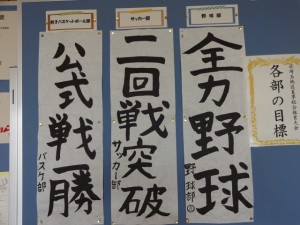 各部の目標
野球部
全力野球
野球部
サッカー部
二回戦突破
サッカー部
男子バスケットボール部
公式戦一勝
バスケ部